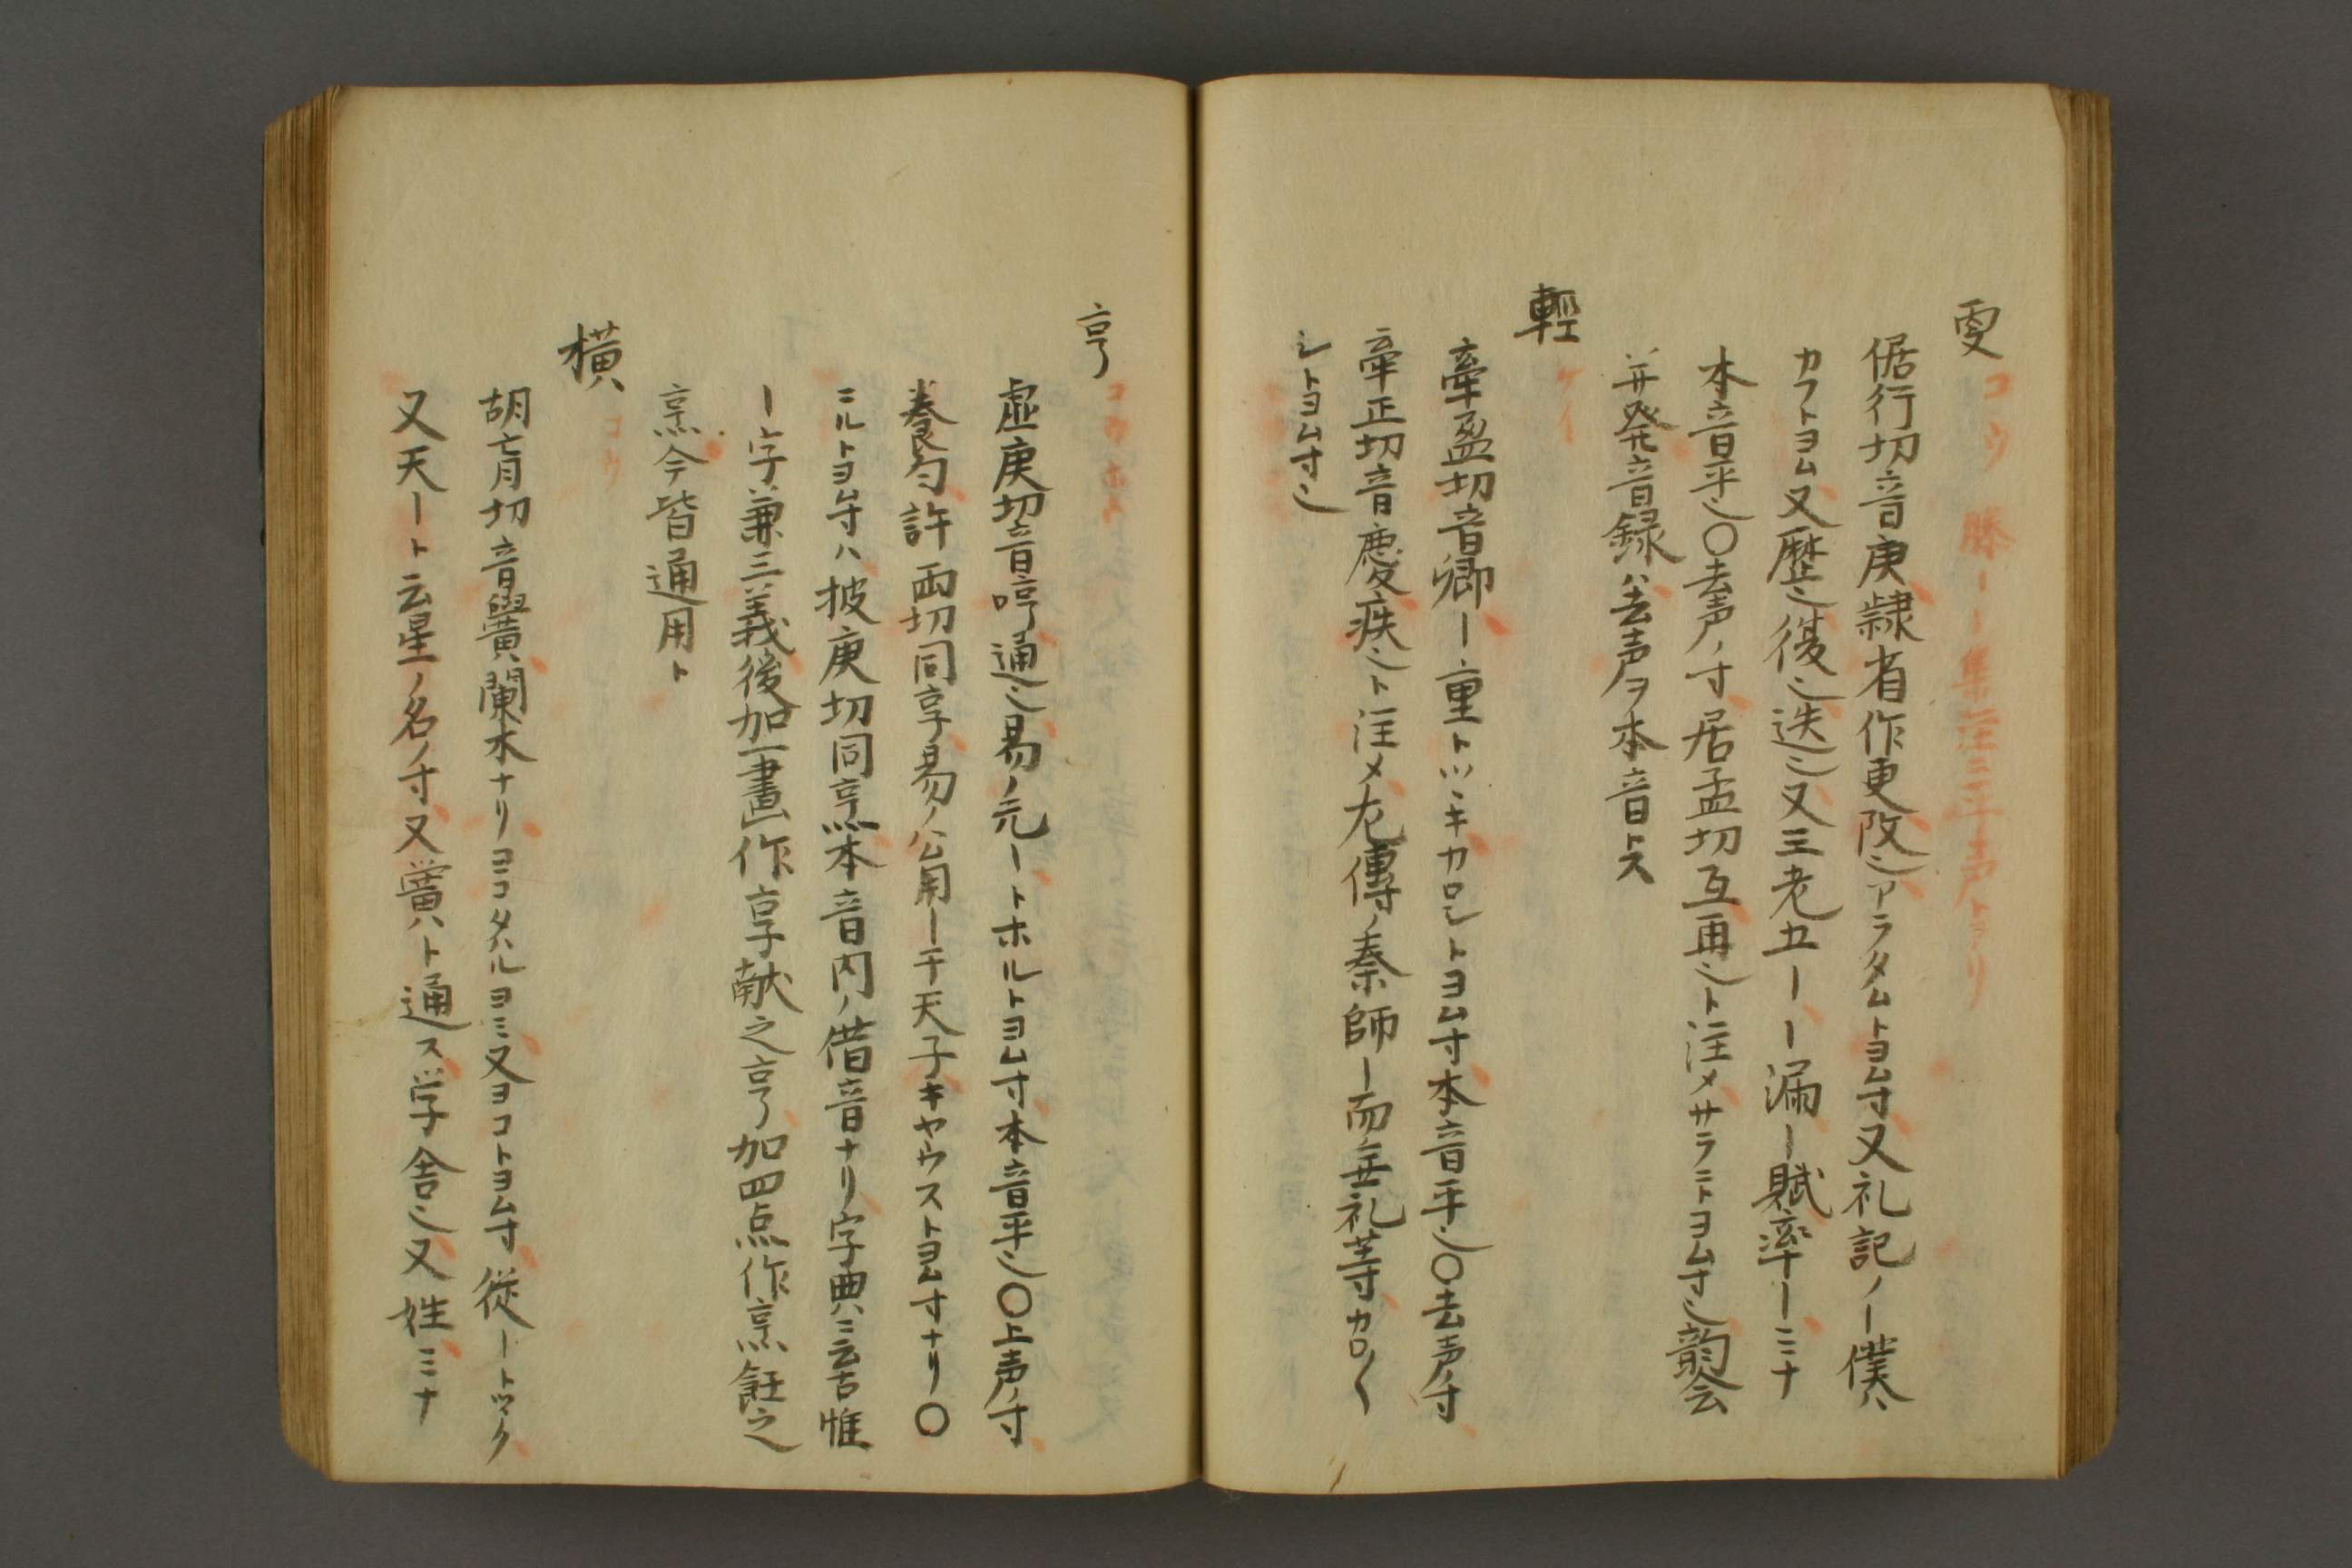 㪅 コウ 滕ーー集注ニ平声トアリ
倨行切音庚隷省作更改也アラタムトヨム寸又礼記ノー僕ハ
カフトヨム又歴也復也迭也又三老五ーー漏ー賦率ーミナ
本音平也〇去声ノ寸居孟切互再也ト注メサラニトヨム寸也韵会
并発音録ハ去声ヲ本音トス
輕 ケイ
牽盈切音卿ー重トツヾキカロシトヨム寸本音平也〇去声ノ寸
牽正切音慶疾也ト注メ左傳ノ秦師ー而無礼等カロ〱
シトヨム寸也
亨
虚庚切音哼通也易ノ元ートホルトヨム寸本音平也〇上声ノ寸
養韵許両切同享易ノ公用ー于天子キヤウストヨム寸ナリ〇
ニルトヨム寸ハ披庚切同烹本音内ノ借音ナリ字典ニ云古惟
ー字兼三義後加一畫作享献之亨加四点作烹飪之
烹今皆通用ト
橫 コウ
胡盲切音黌闌木ナリヨコタハルヨミ又ヨコトヨム寸従ートツヾク
又天ート云星ノ名ノ寸又黌ト通ス学舎也又姓ミナ